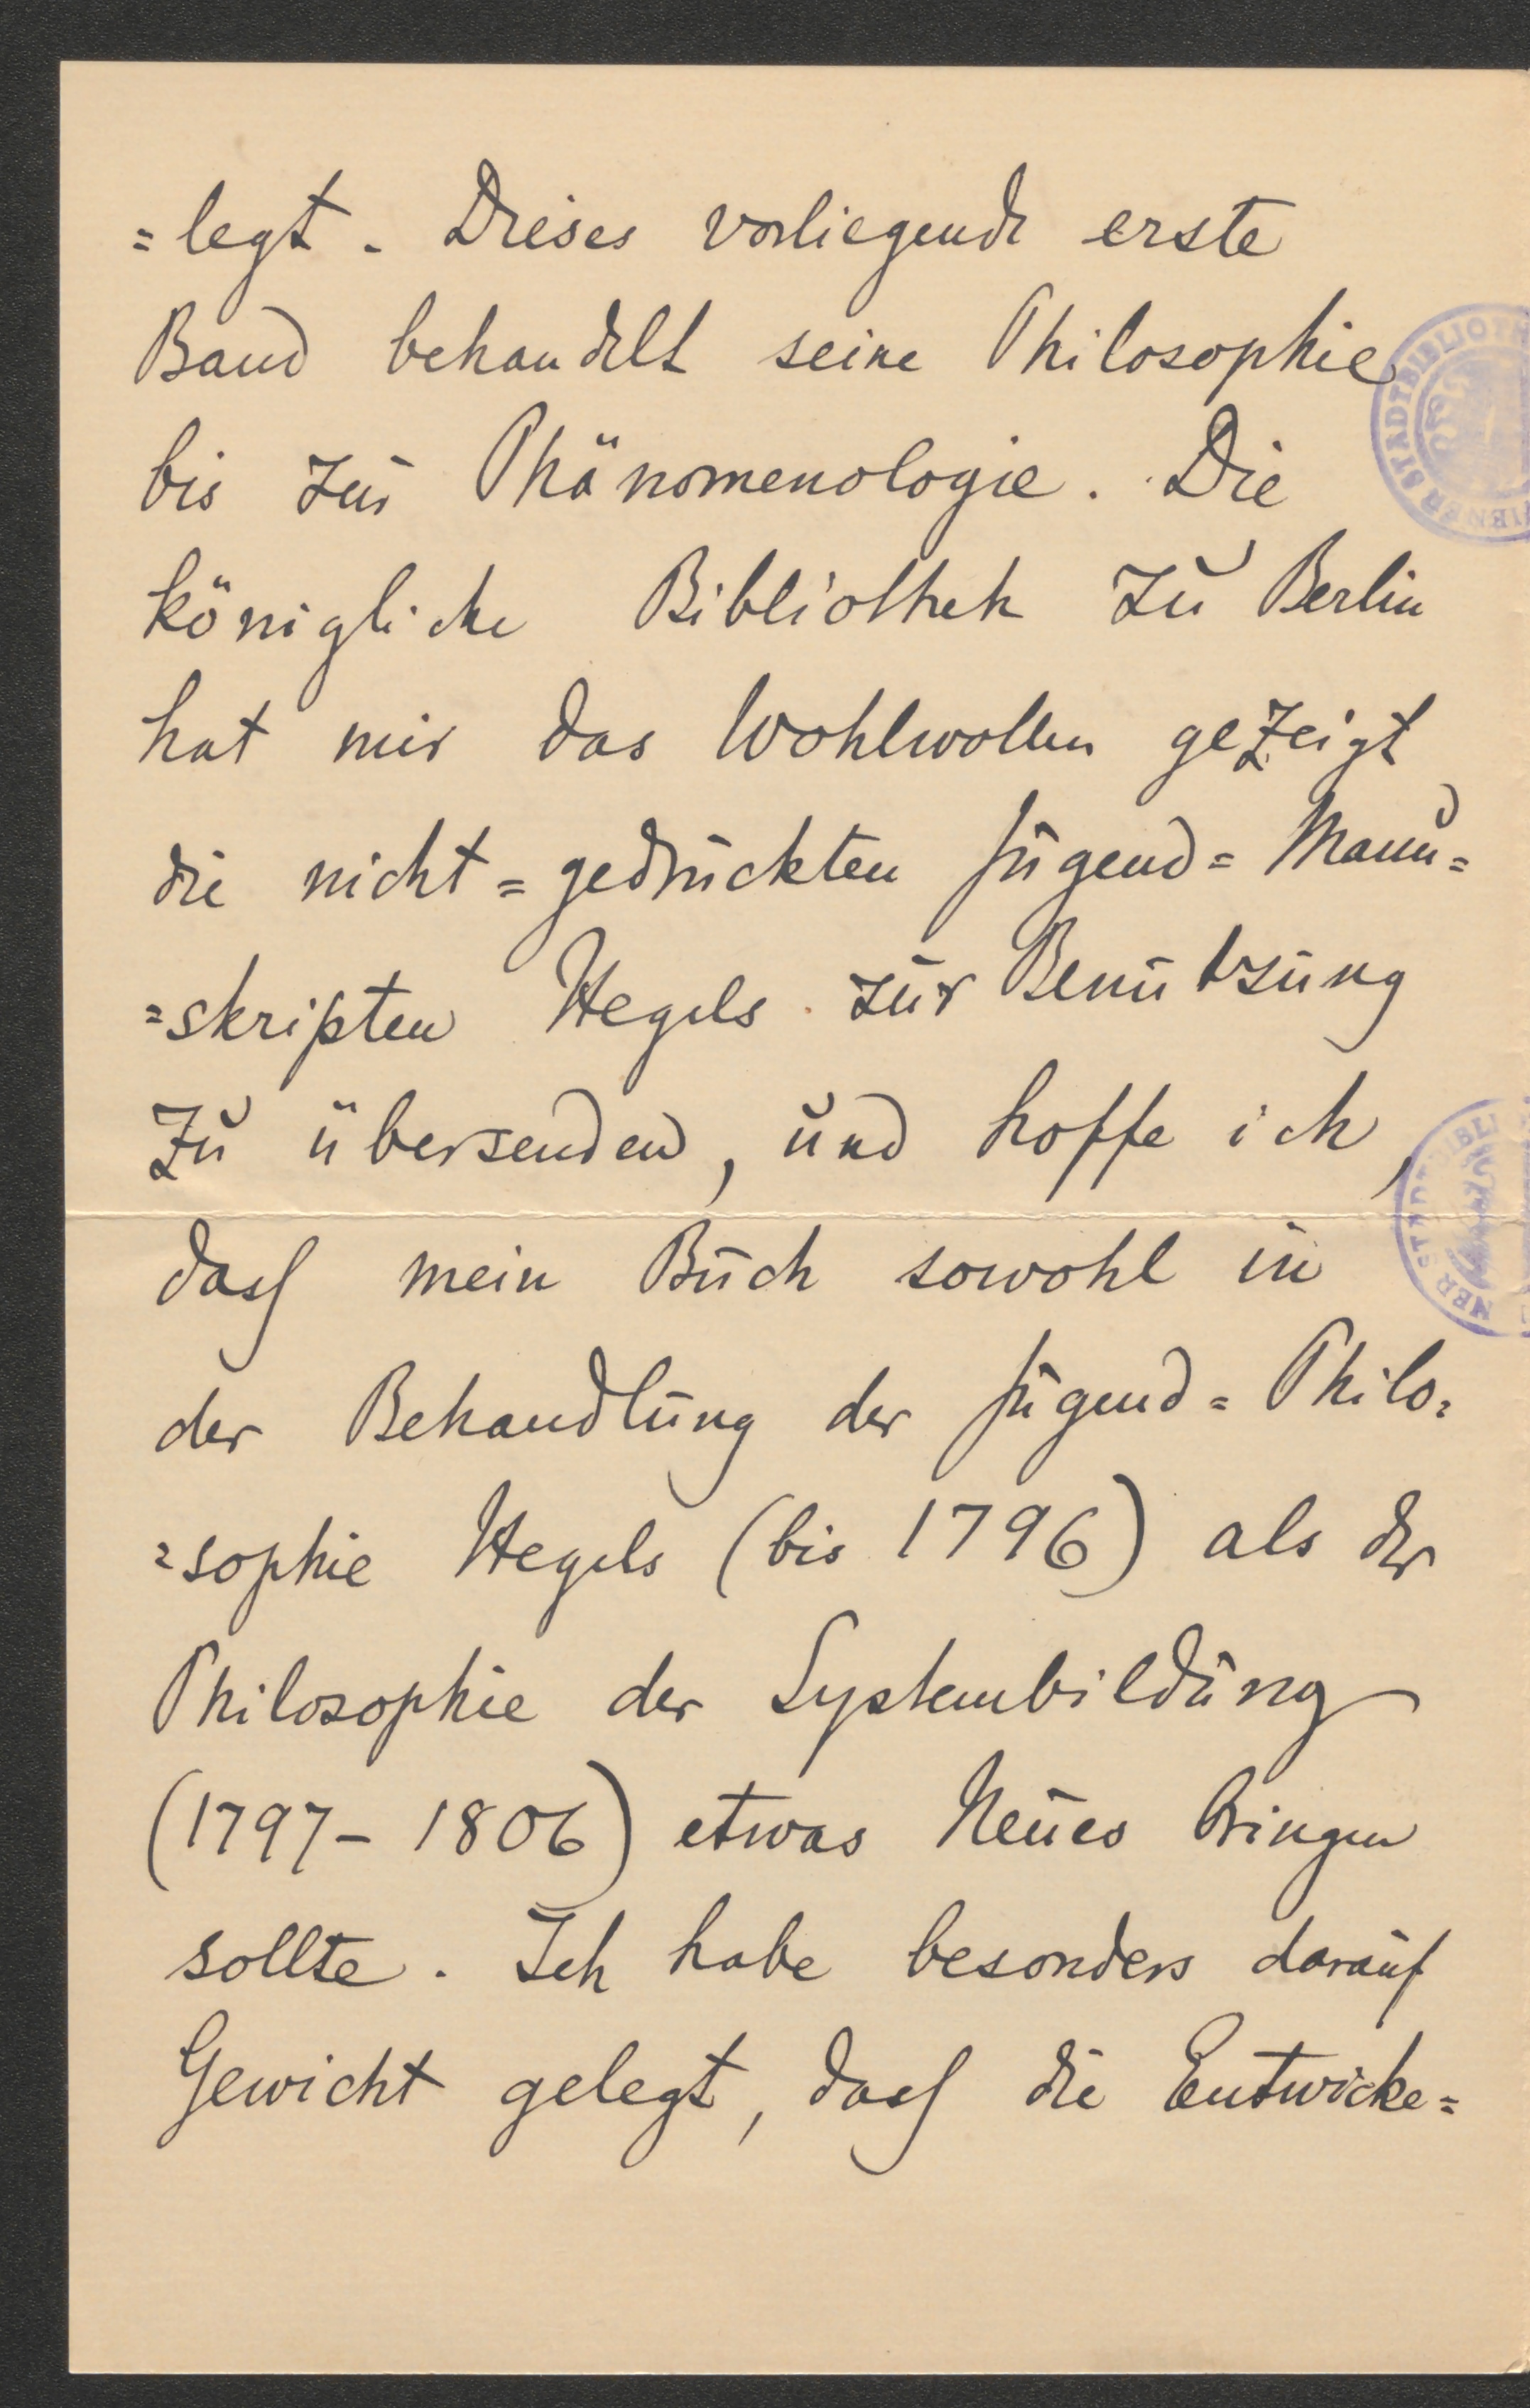 =legt. Dieses vorliegende erste
Band behandelt seine Philosophie
bis zur Phänomenologie. Die
königliche Bibliothek zu Berlin
hat mir das Wohlwollen gezeigt
die nicht=gedruckten Jugend=Manu=
=skripten Hegels zur Benutzung
zu übersenden, und hoffe ich,
dass mein Buch sowohl in
der Behandlung der Jugend=Philo=
=sophie Hegels (bis 1796) als der
Philosophie der Systembildung
(1797-1806) etwas Neues bringen
sollte. Ich habe besonders darauf
Gewicht gelegt, dass die Entwicke=